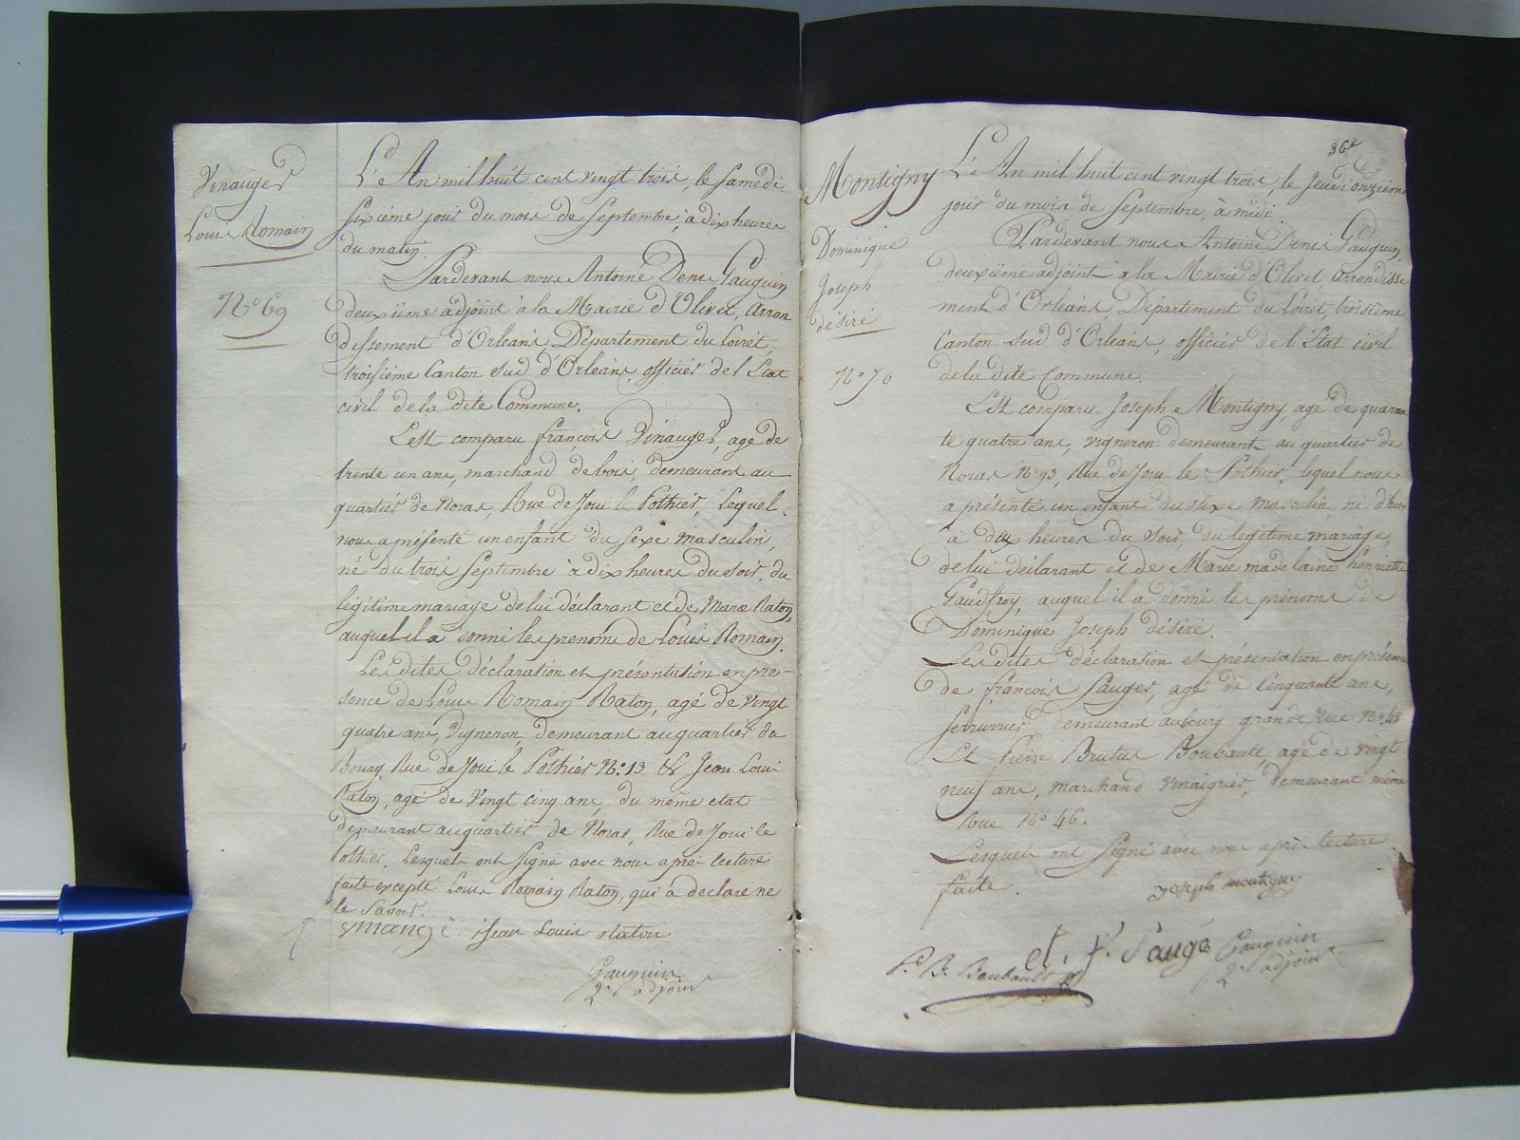 Vinauger
Louis Romain
N.o 69
L'An mil huit cent vingt trois, le samedi
sixième jour du mois de septembre, à dix heures
du matin.
Pardevant nous Antoine Denis Gauguin
deuxième adjoint à la Mairie d'Olivet, arron
dissement d'Orléans, Département du Loiret,
troisième Canton sud d'Orléans, officier de l'Etat
civil de la dite Commune.
Est comparu françois Vinauger, agé de
trente un ans, marchand de bois, demeurant au
quartier de Noras, Rue de Joui le Pothier, lequel
nous a présenté un enfant du sexe masculin,
né du trois septembre à dix heures du soir, du
légitime mariage de lui déclarant et de Marie Raton,
auquel il a donné les prenoms de Louis Romain.
Les dites déclaration et présentation en pré-
sence de Louis Romain Raton, agé de vingt
quatre ans, Vigneron, demeurant au quartier du
Bourg, Rue de Joui le Pothier N.o 13 Et Jean Louis
Raton, agé de vingt cinq ans, du même etat
demeurant au quartier de Noras, Rue de Joui le
Pothier. Lesquels ont signé avec nous après lecture
faite excepté Louis Romain Raton, qui a déclaré ne
le savoir.
jean Louis raton
Gauguin
2e adjoint
36e
Montigny
Dominique
Joseph
désiré
N.o 70
L'An mil huit cent vingt trois, le Jeudi onzième
jour du mois de septembre, à midi.
Pardevant nous Antoine Denis Gauguin,
deuxième adjoint à la Mairie d'Olivet, arrondisse
ment d'Orléans, Département du Loiret, troisième
Canton sud d'Orléans, officier de l'Etat civil
de la dite Commune.
Est comparu Joseph Montigny, agé de quaran
te quatre ans, vigneron demeurant au quartier de
Noras N.o 93, Rue de Joui le Pothier, lequel nous
a présenté un enfant du sexe masculin, né d'hier
à dix heures du soir, du légitime mariage,
de lui déclarant et de Marie madelaine henriette
Gaudfroy, auquel il a donné les prénoms de
Dominique Joseph désiré.
Les dites déclaration et présentation en présence
de françois Sauger, agé de cinquante ans,
serrurier demeurant au bourg grande Rue N.o 48
Et Pierre Brutus Boubault, agé de vingt
neuf ans, marchand vinaigrier, demeurant même
Rue N.o 46.
Lesquels ont signé avec nous après lecture
faite.
joseph montigny
f. Saugé Gauguin
P. B. Boubault
2e adjoint